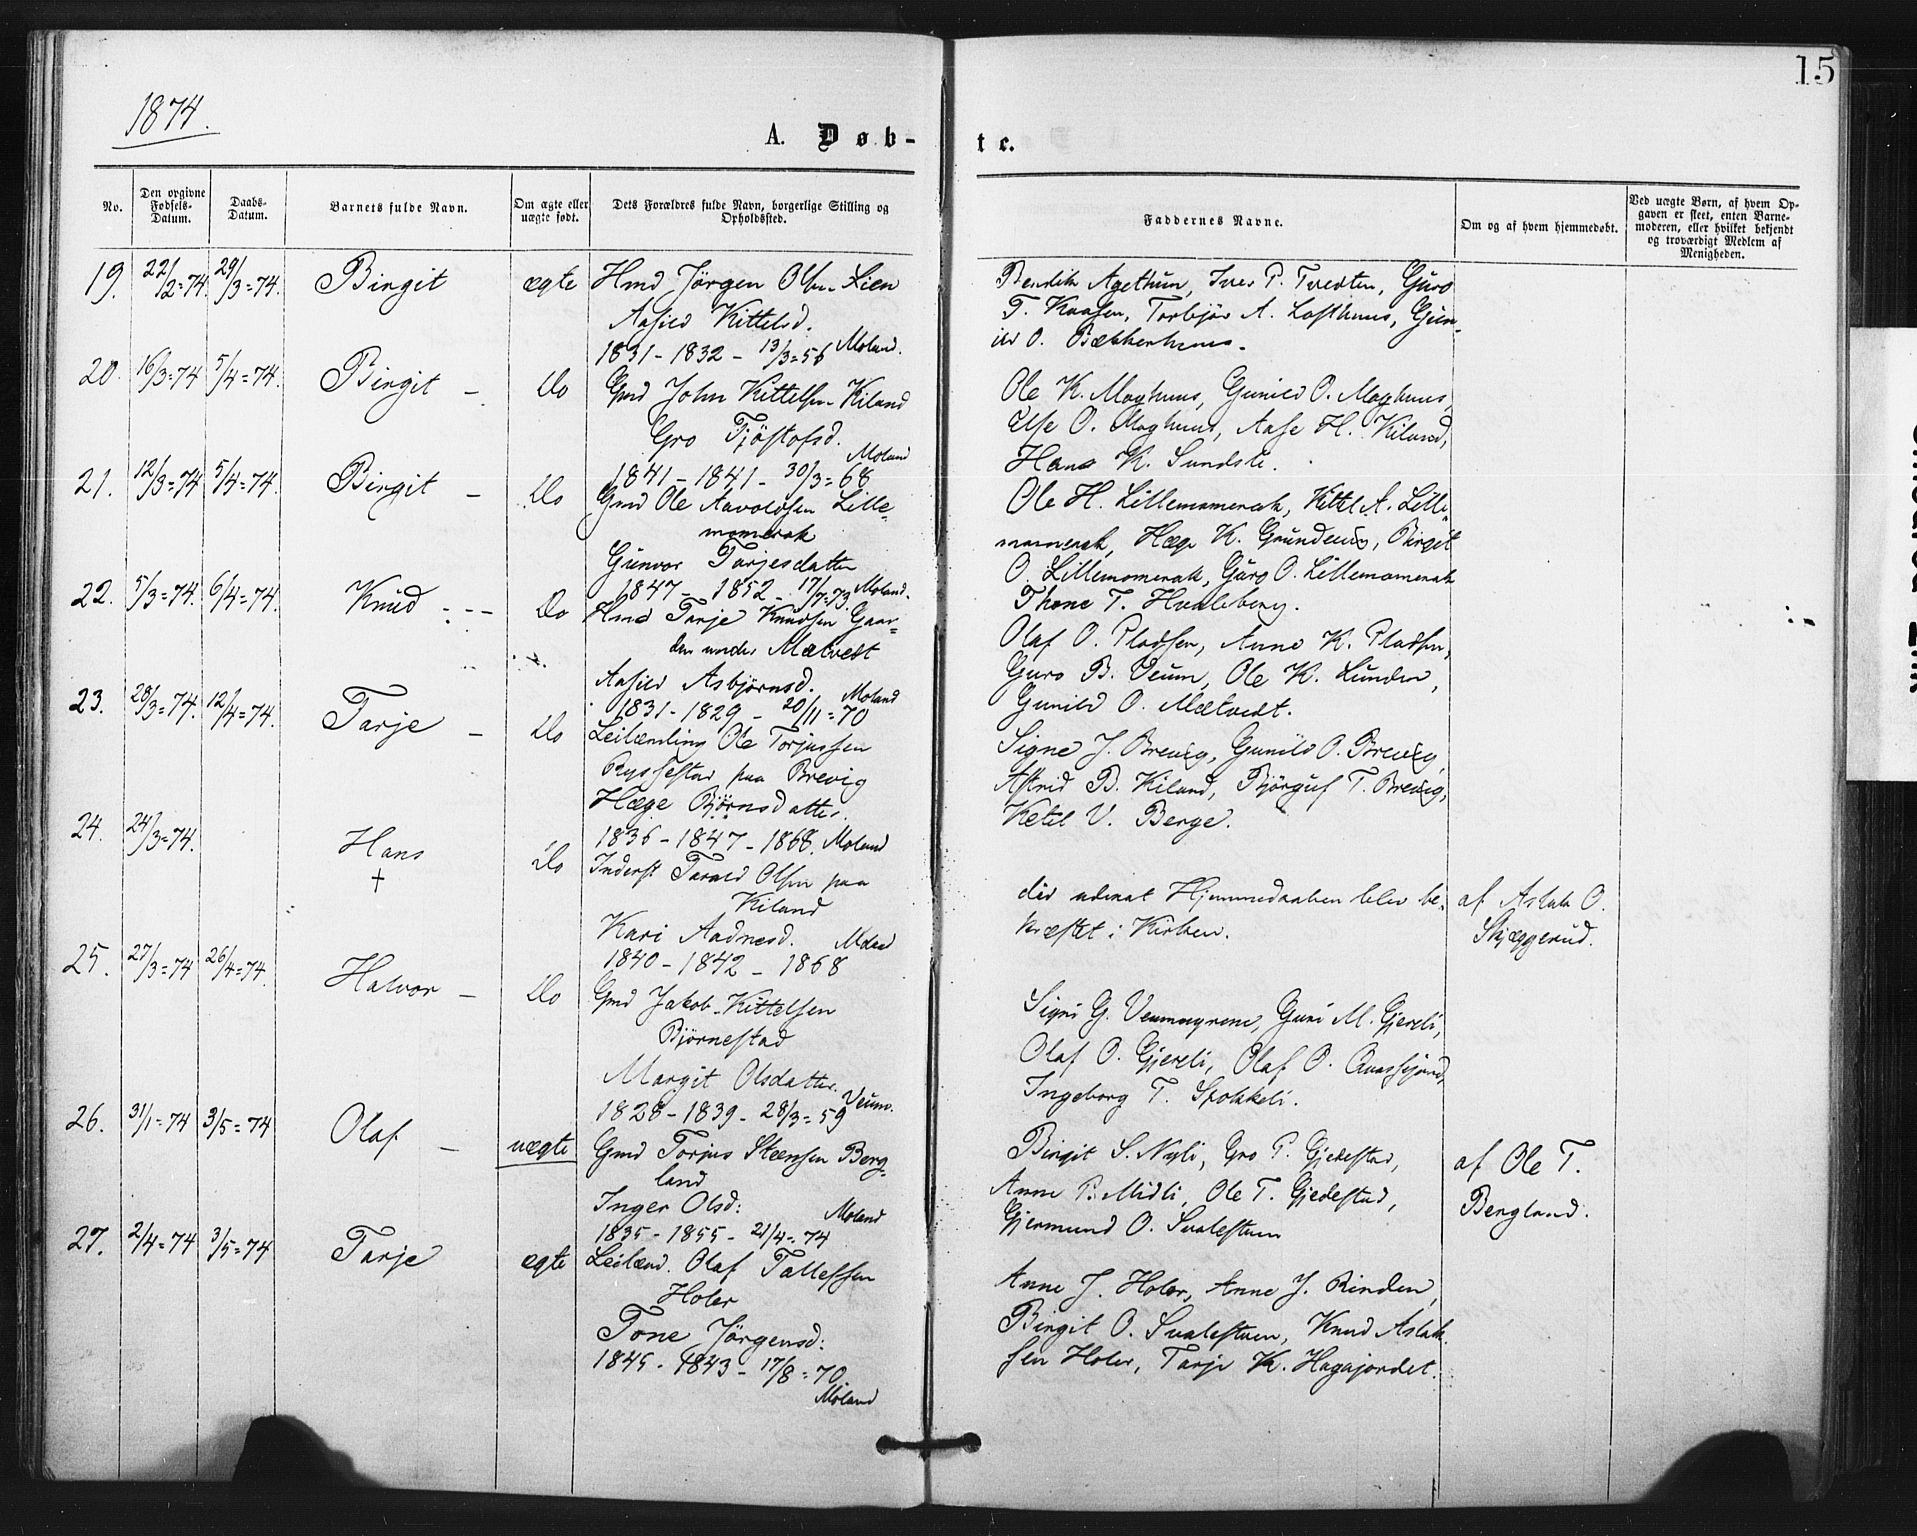 15
1874.
A. Døb-
te.
No.
Den opgivne Fødsels-Datum.
Daabs-Datum.
Barnets fulde Navn.
Om ægte eller uægte født.
Dets Forældres fulde Navn, borgerlige Stilling og Opholdssted.
Faddernes Navne.
Om og af hvem hjemmedøbt.
Ved uægte Børn, af hvem Opgaven er skeet, enten Barnemoderen, eller hvilket bekjendt og troværdigt Medlem af Menigheden.
19. 22/2=74. 29/3=74. Birgit ægte Hmd Jörgen Olsen Lien
Aasild Kittelsd.
1831 - 1832 - 13/3=56 Moland.
Bendik Agethun, Iver P. Tvedten, Guro
T. Kaasen, Torbjör A. Lofthuus, Gun-
ild O. Bækkerhuus.
20. 16/3=74 5/4=74. Birgit - Do Gmd John Kittelsen Kiland
Gro Tjöstofsd.
1841 - 1841 - 30/3=68 Moland
Ole K. Moghuus, Gunild O. Moghuus,
Else O. Moghuus, Aase H. Kiland,
Hans K. Sundsli.
21. 12/3=74 5/4=74. Birgit - Do Gmd Ole Aavoldsen Lille-
momerak
Gunvor Tarjesdatter
1847 - 1852 - 17/7=73. Moland.
Ole H. Lillemomerak, Kittel A. Lille-
momerak, Hæge K. Grundeuis, Birgit
O. Lillemomerak, Guro O. Lillemomerak
Thone T. Hvaleberg.
22. 5/3=74. 6/4=74. Knud - - - Do Hmd Tarje Knudsen Gaar-
den under Mætvedt
Aasild Asbjörnsd.
1831 - 1829 - 20/11=70 Moland
Olaf O. Pladsen, Anne K. Pladsen,
Guro B. Veum, Ole K. Lunden,
Gunild O. Mætvedt.
23. 28/3=74. 12/4=74. Tarje - Do Leilænding Ole Torjussen
Rysfestad paa Brevig
Hæge Björnsdatter.
1836 - 1847 - 1868. Moland
Signe J. Brevig, Gunild O. Brevig,
Astrid B. Kiland, Björguf T. Brevig,
Ketil V. Berge.
24. 24/3=74. Hans † Do Inderst Tarald Olsen paa
Kiland
Kari Aadnesd. Moland
1840 - 1842 - 1868
död uden at Hjemmedaaben blev be-
kræftet i Kirken.
af Aslak O.
Skjæggerud.
25. 27/3=74 26/4=74. Halvor - Do Gmd Jakob Kittelsen
Björnestad
Margit Olsdatter.
1828 - 1839 - 28/3=59 Veum.
Signi G. Veummyrene, Guri M. Gjereli,
Olaf O. Gjereli, Olaf O. Qvassjord,
Ingeborg T. Spokkeli.
26. 31/1=74 3/5=74 Olaf - uægte Gmd Torjus Steensen Berg-
land
Inger Olsd: Moland
1835 - 1855 - 21/4=74
Birgit S. Nyli, Gro P. Gjedestad,
Anne P. Midli, Ole T. Gjedestad,
Gjermund O. Svalestuen
af Ole T.
Bergland.
27. 2/4=74 3/5=74 Tarje ægte Leilænd. Olaf Tallefsen
Holer
Tone Jörgensd:
1845 - 1843 - 17/8=70.
Moland
Anne J. Holer, Anne J. Rinden,
Birgit O. Svalestuen, Knud Aslak-
sen Holer, Tarje K. Hagajordet.